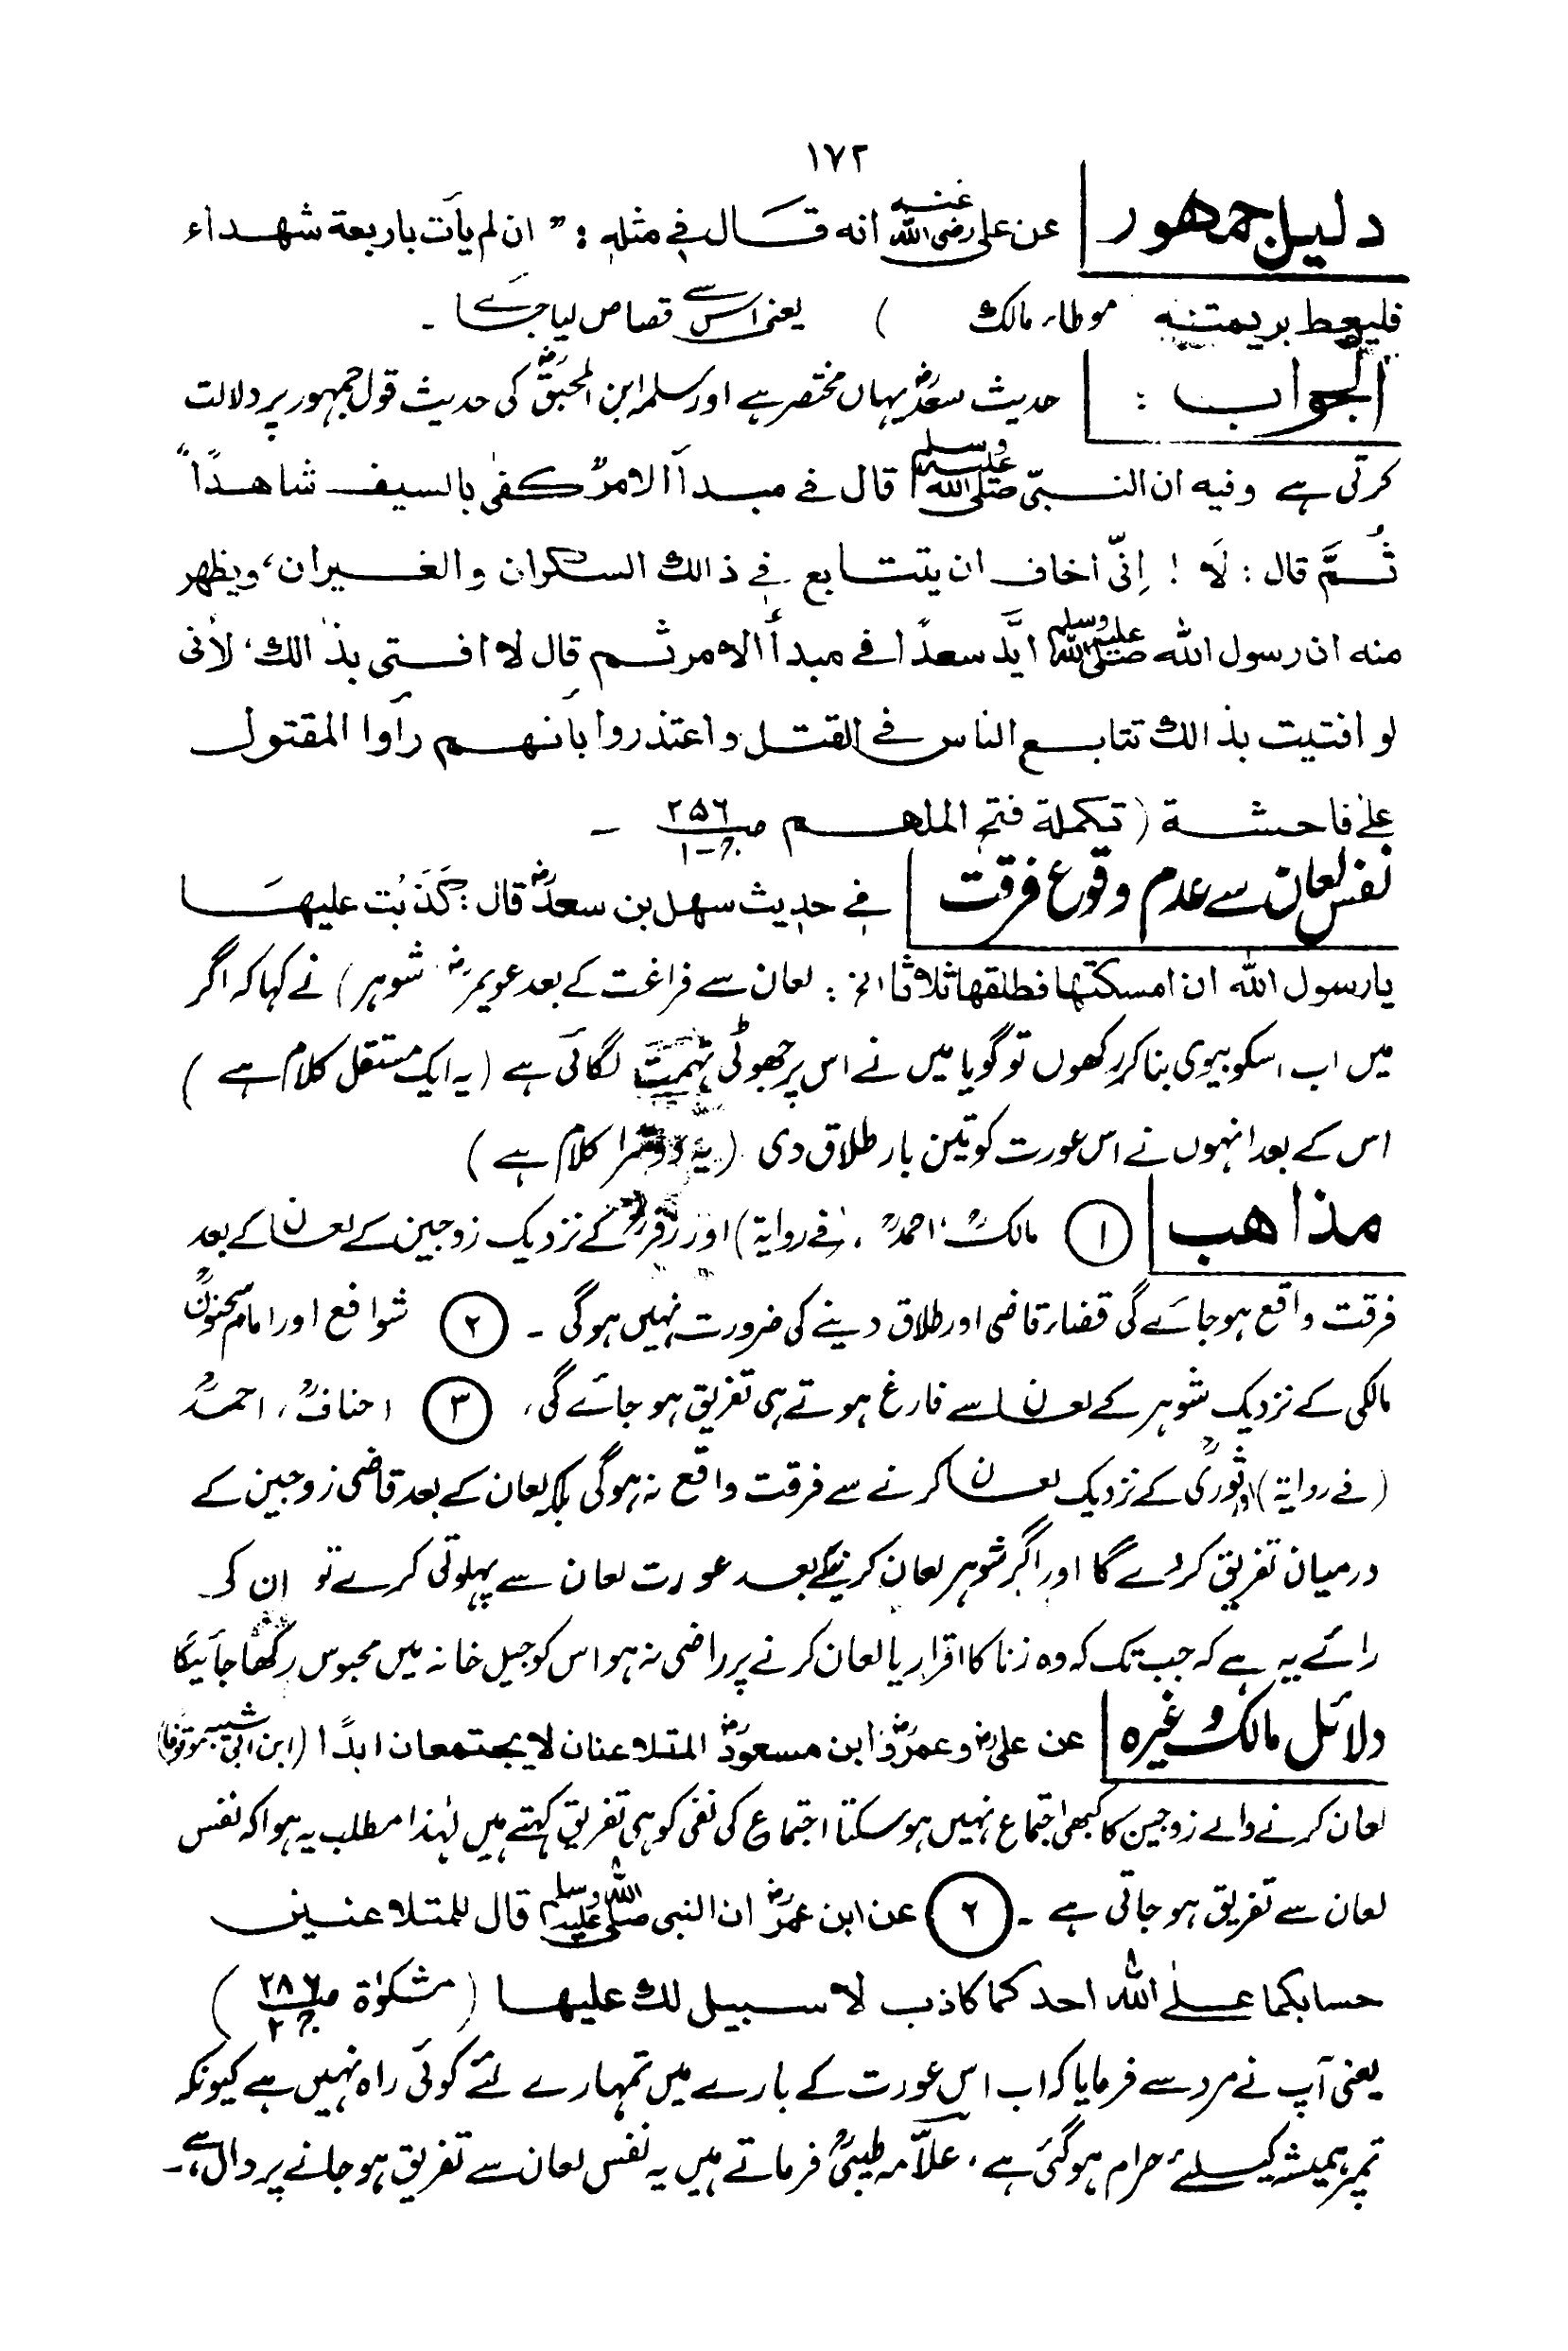 ۱۷۲
دلیل جمهور عن علی رضی الله عنه انه قال فی مثله : " ان لم یأت باربعة شهداء
فلیعط بریمتنه موطاء مالک ) یعنی اس سے قصاص لیا جائے گا ۔
الجواب : حدیث سعدؓ یہاں مختصر ہے اور سلمہ ابن المحبقؓ کی حدیث قول جمہور پر دلالت
کرتی ہے وفیه ان النبیّ صلی الله علیه وسلم قال فی مبدأ الامر " کفیٰ بالسیف شاهدًا "
ثُمَّ قال : لَا ! اِنّی أخاف ان یتتابع فی ذالک السکران والغیران، ویظهر
منه ان رسول الله صلی الله علیه وسلم ایَّد سعدًا فی مبدأ الامر ثم قال لا افتی بذالک، لأنی
لو افتیت بذالک تتابع الناس فی القتل واعتذروا بأنهم رأوا المقتول
علی فاحشة ( تکملة فتح الملهم ص ۲۵۶ ج-۱ ۔
نفس لعان سے عدم وقوع فرقت فی حدیث سهل بن سعدؓ قال : کَذَبْت علیها
یارسول الله ان امسکتها فطلقها ثلاثا الخ : لعان سے فراغت کے بعد عویمرؓ شوہر ) نے کہا کہ اگر
میں اب اسکو بیوی بنا کر رکھوں تو گویا میں نے اس پر جھوٹی تہمت لگائی ہے ( یہ ایک مستقل کلام ہے )
اس کے بعد انہوں نے اس عورت کو تین بار طلاق دی ( یہ دوسرا کلام ہے )
مذاهب ۱ مالکؒ، احمدؒ ، فی روایة ) اور زفرؒ کے نزدیک زوجین کے لعان کے بعد
فرقت واقع ہو جائے گی قضاء قاضی اور طلاق دینے کی ضرورت نہیں ہوگی ۔ ۲ شوافع اور امام سحنونؒ
مالکی کے نزدیک شوہر کے لعان سے فارغ ہوتے ہی تفریق ہو جائے گی، ۳ احنافؒ، احمدؒ
( فی روایة ) اور ثوریؒ کے نزدیک لعان کرنے سے فرقت واقع نہ ہوگی بلکہ لعان کے بعد قاضی زوجین کے
درمیان تفریق کردے گا اور اگر شوہر لعان کرنیکے بعد عورت لعان سے پہلوتی کرے تو ان کی
رائے یہ ہے کہ جب تک کہ وہ زنا کا اقرار یا لعان کرنے پر راضی نہ ہو اس کو جیل خانہ میں محبوس رکھا جائیگا
دلائل مالکؒ وغیرہ عن علیؓ وعمرؓ وابن مسعودؓ المتلاعنان لا یجتمعان ابدًا ( ابن ابی شیبہ موقوفا )
لعان کرنے والے زوجین کا کبھی اجتماع نہیں ہو سکتا اجتماع کی نفی کو ہی تفریق کہتے ہیں لہٰذا مطلب یہ ہوا کہ نفس
لعان سے تفریق ہو جاتی ہے ۔ ۲ عن ابن عمرؓ ان النبی صلی الله علیه وسلم قال للمتلاعنین
حسابکما علی الله احدکما کاذب لا سبیل لک علیها ( مشکوٰة ص ۲۸۶ ج ۲ )
یعنی آپ نے مرد سے فرمایا کہ اب اس عورت کے بارے میں تمہارے لئے کوئی راہ نہیں ہے کیونکہ
تمپر ہمیشہ کیلئے حرام ہوگئی ہے، علاّمہ طیبیؒ فرماتے ہیں یہ نفس لعان سے تفریق ہو جانے پر دال ہے ۔